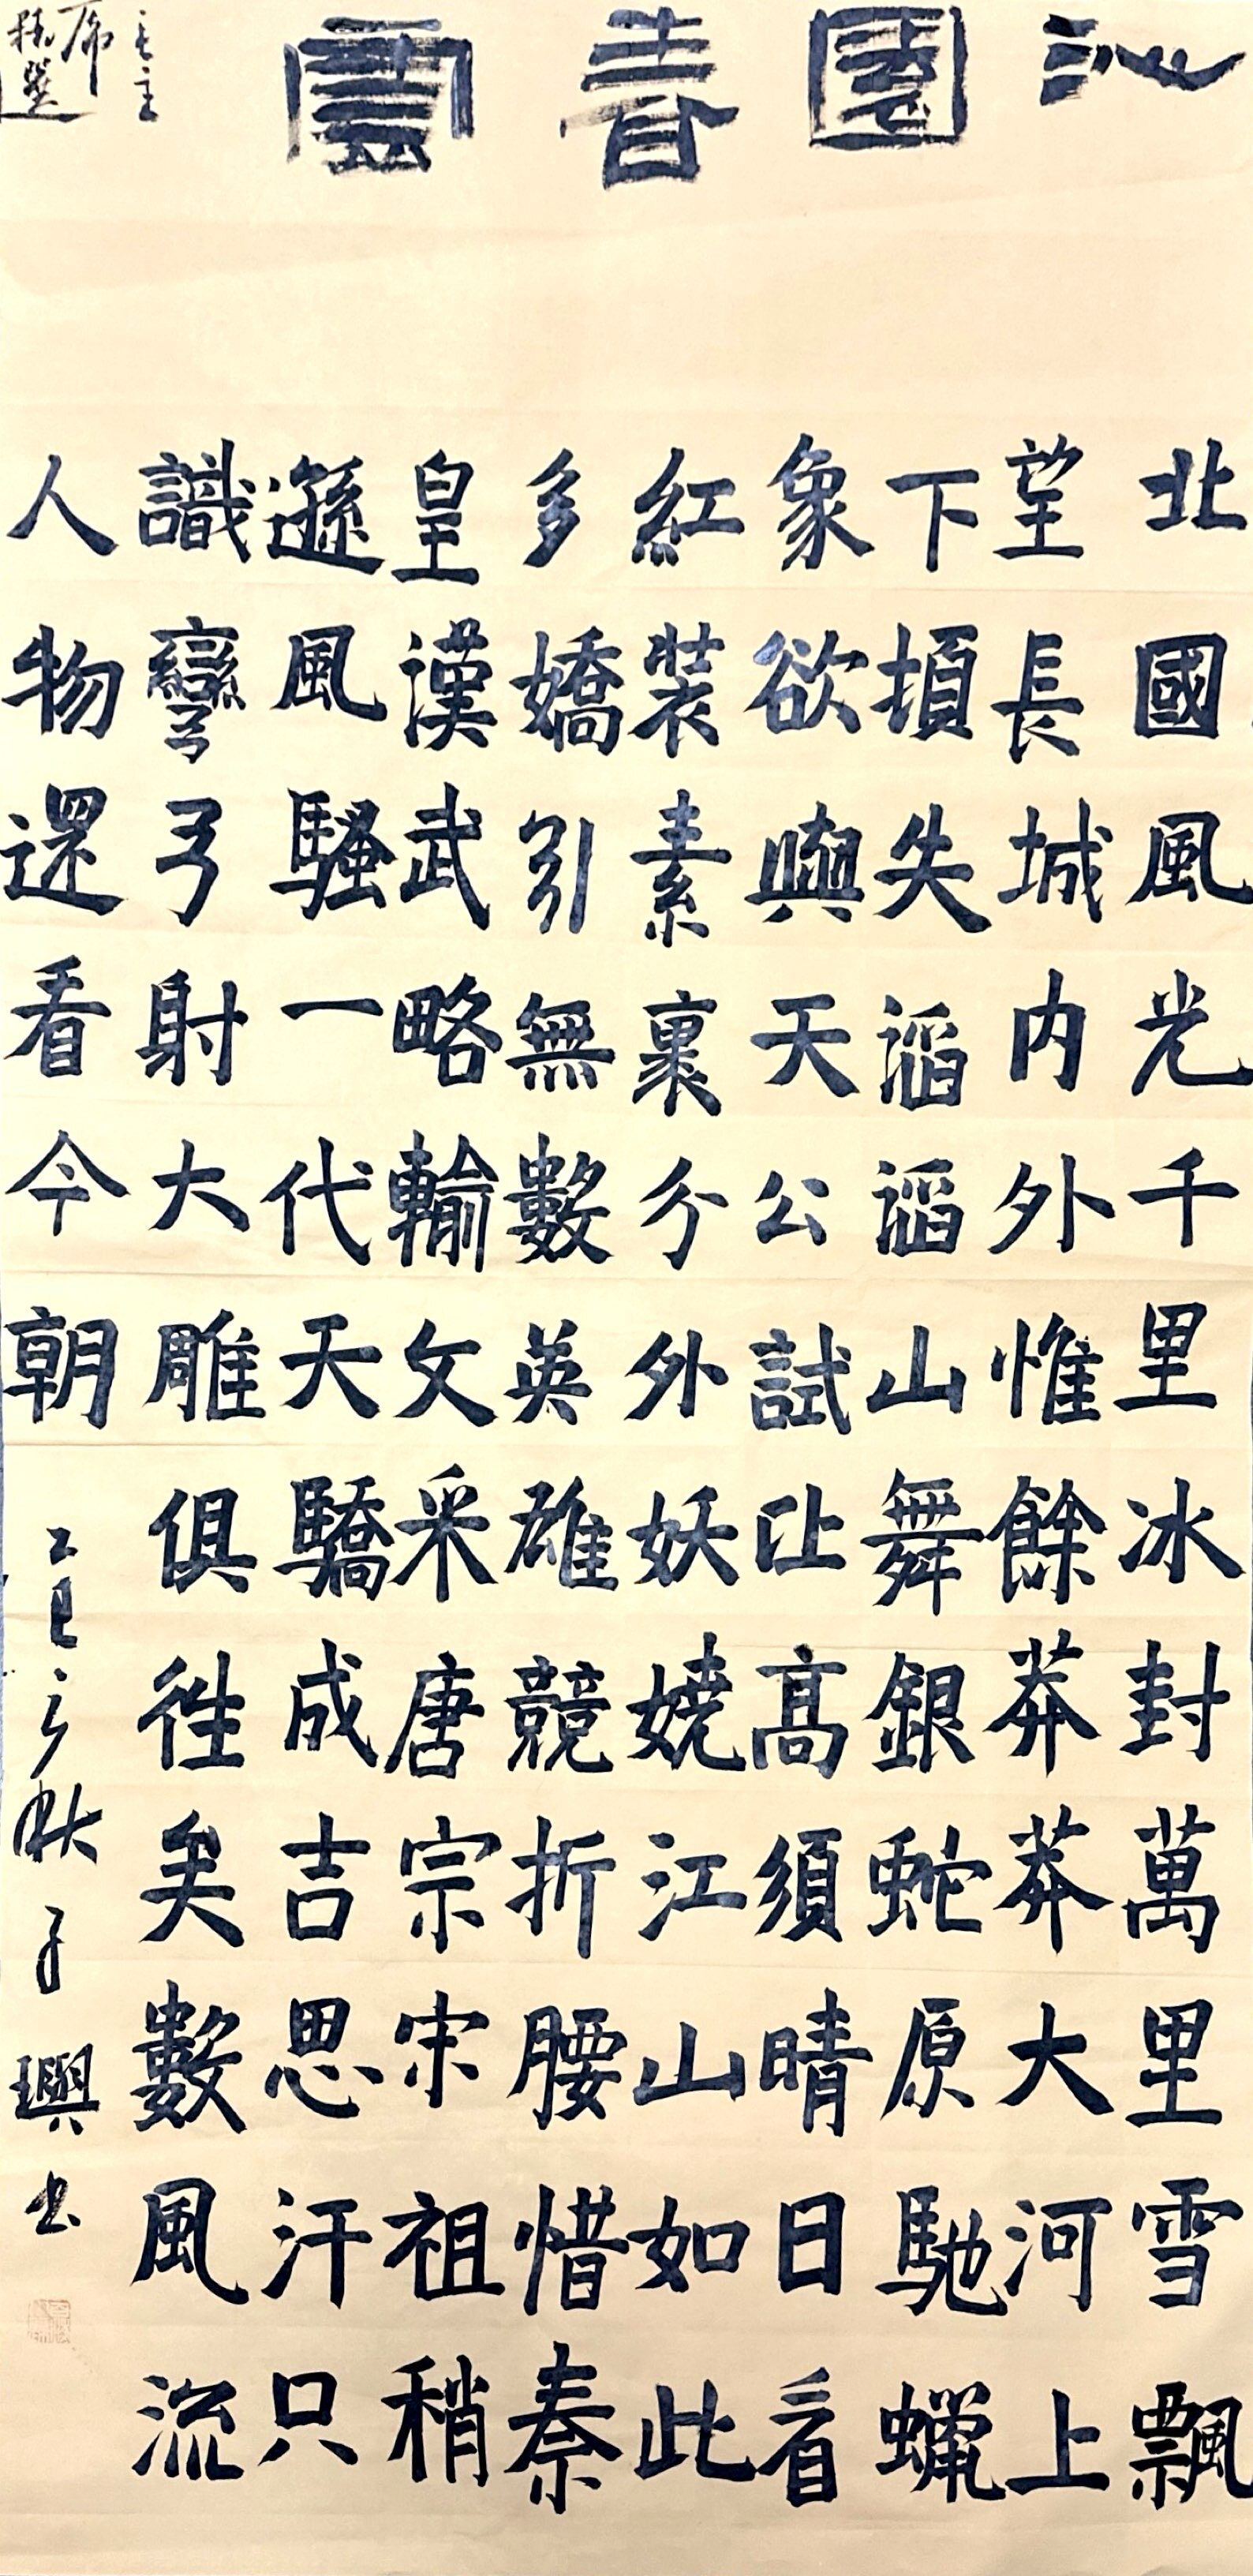 沁園春雪
毛主
席
北國風光千里冰封萬里雪飄
望長城内外惟餘莽莽大河上
下頓失滔滔山舞銀蛇原馳蠟
象欲與天公試比高須晴日看
紅裝素裹分外妖嬈江山如此
多嬌引無數英雄競折腰惜秦
皇漢武略輸文采唐宗宋祖稍
遜風騷一代天驕成吉思汗只
識彎弓射大雕俱往矣數風流
人物還看今朝
乙巳之秋子璵书